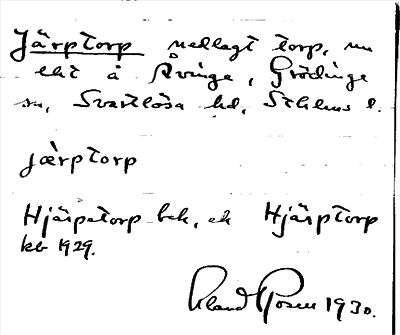 Järptorp nedlagt torp, nu
elit å Åvinge, Grödinge
sn, Svartlösa hd, Sthlms l.
jærptorp
Hjärpetorp bek, ek Hjärptorp
kb 1929.
Eland Rosell 1930.